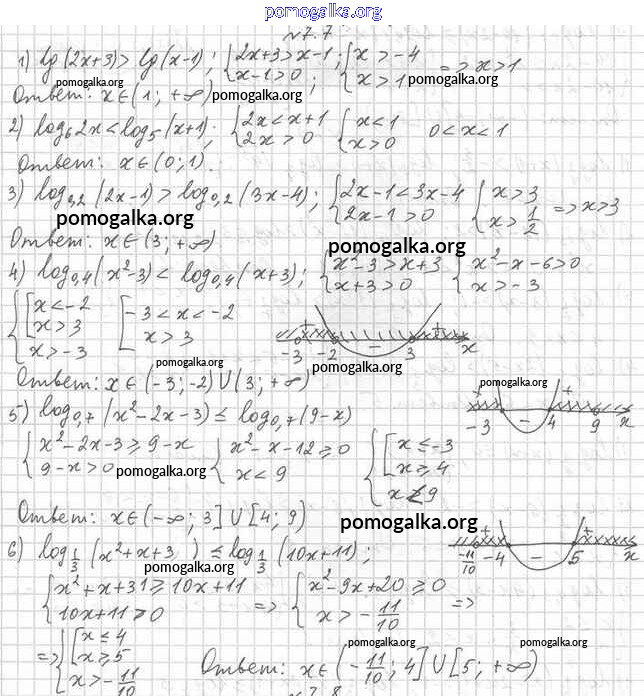 pomogalka.org
№7.7
1) lg(2x+3)>lg(x-1); {2x+3>x-1; x-1>0; {x>-4 x>1 => x>1
pomogalka.org
Ответ: x∈(1; +∞) pomogalka.org pomogalka.org
2) log₆2x<log₅(x+1); {2x<x+1 2x>0 {x<1 x>0 0<x<1
Ответ: x∈(0; 1).
3) log₀,₂(2x-1)>log₀,₂(3x-4); {2x-1<3x-4 2x-1>0 {x>3 x>1/2 => x>3
pomogalka.org
Ответ: x∈(3; +∞) pomogalka.org
4) log₀,₄(x²-3)<log₀,₄(x+3); {x²-3>x+3 x+3>0 {x²-x-6>0 x>-3
{[x<-2 x>3 x>-3 [-3<x<-2 x>3
+ - + -3 -2 3 x
pomogalka.org
Ответ: x∈(-3; -2)∪(3; +∞) pomogalka.org
5) log₀,₇(x²-2x-3)≤log₀,₇(9-x)
+ - + -3 4 9 x
{x²-2x-3≥9-x 9-x>0 {x²-x-12≥0 x<9 {[x≤-3 x≥4 x<9
pomogalka.org
Ответ: x∈(-∞; 3]∪[4; 9) pomogalka.org
6) log1/3(x²+x+3 )≤log1/3(10x+11);
+ - + -11/10 -4 5 x
pomogalka.org
{x²+x+31≥10x+11 10x+11>0 => {x²-9x+20≥0 x>-11/10 =>
=> {[x≤4 x≥5 x>-11/10
pomogalka.org pomogalka.org
Ответ: x∈(-11/10; 4]∪[5; +∞)